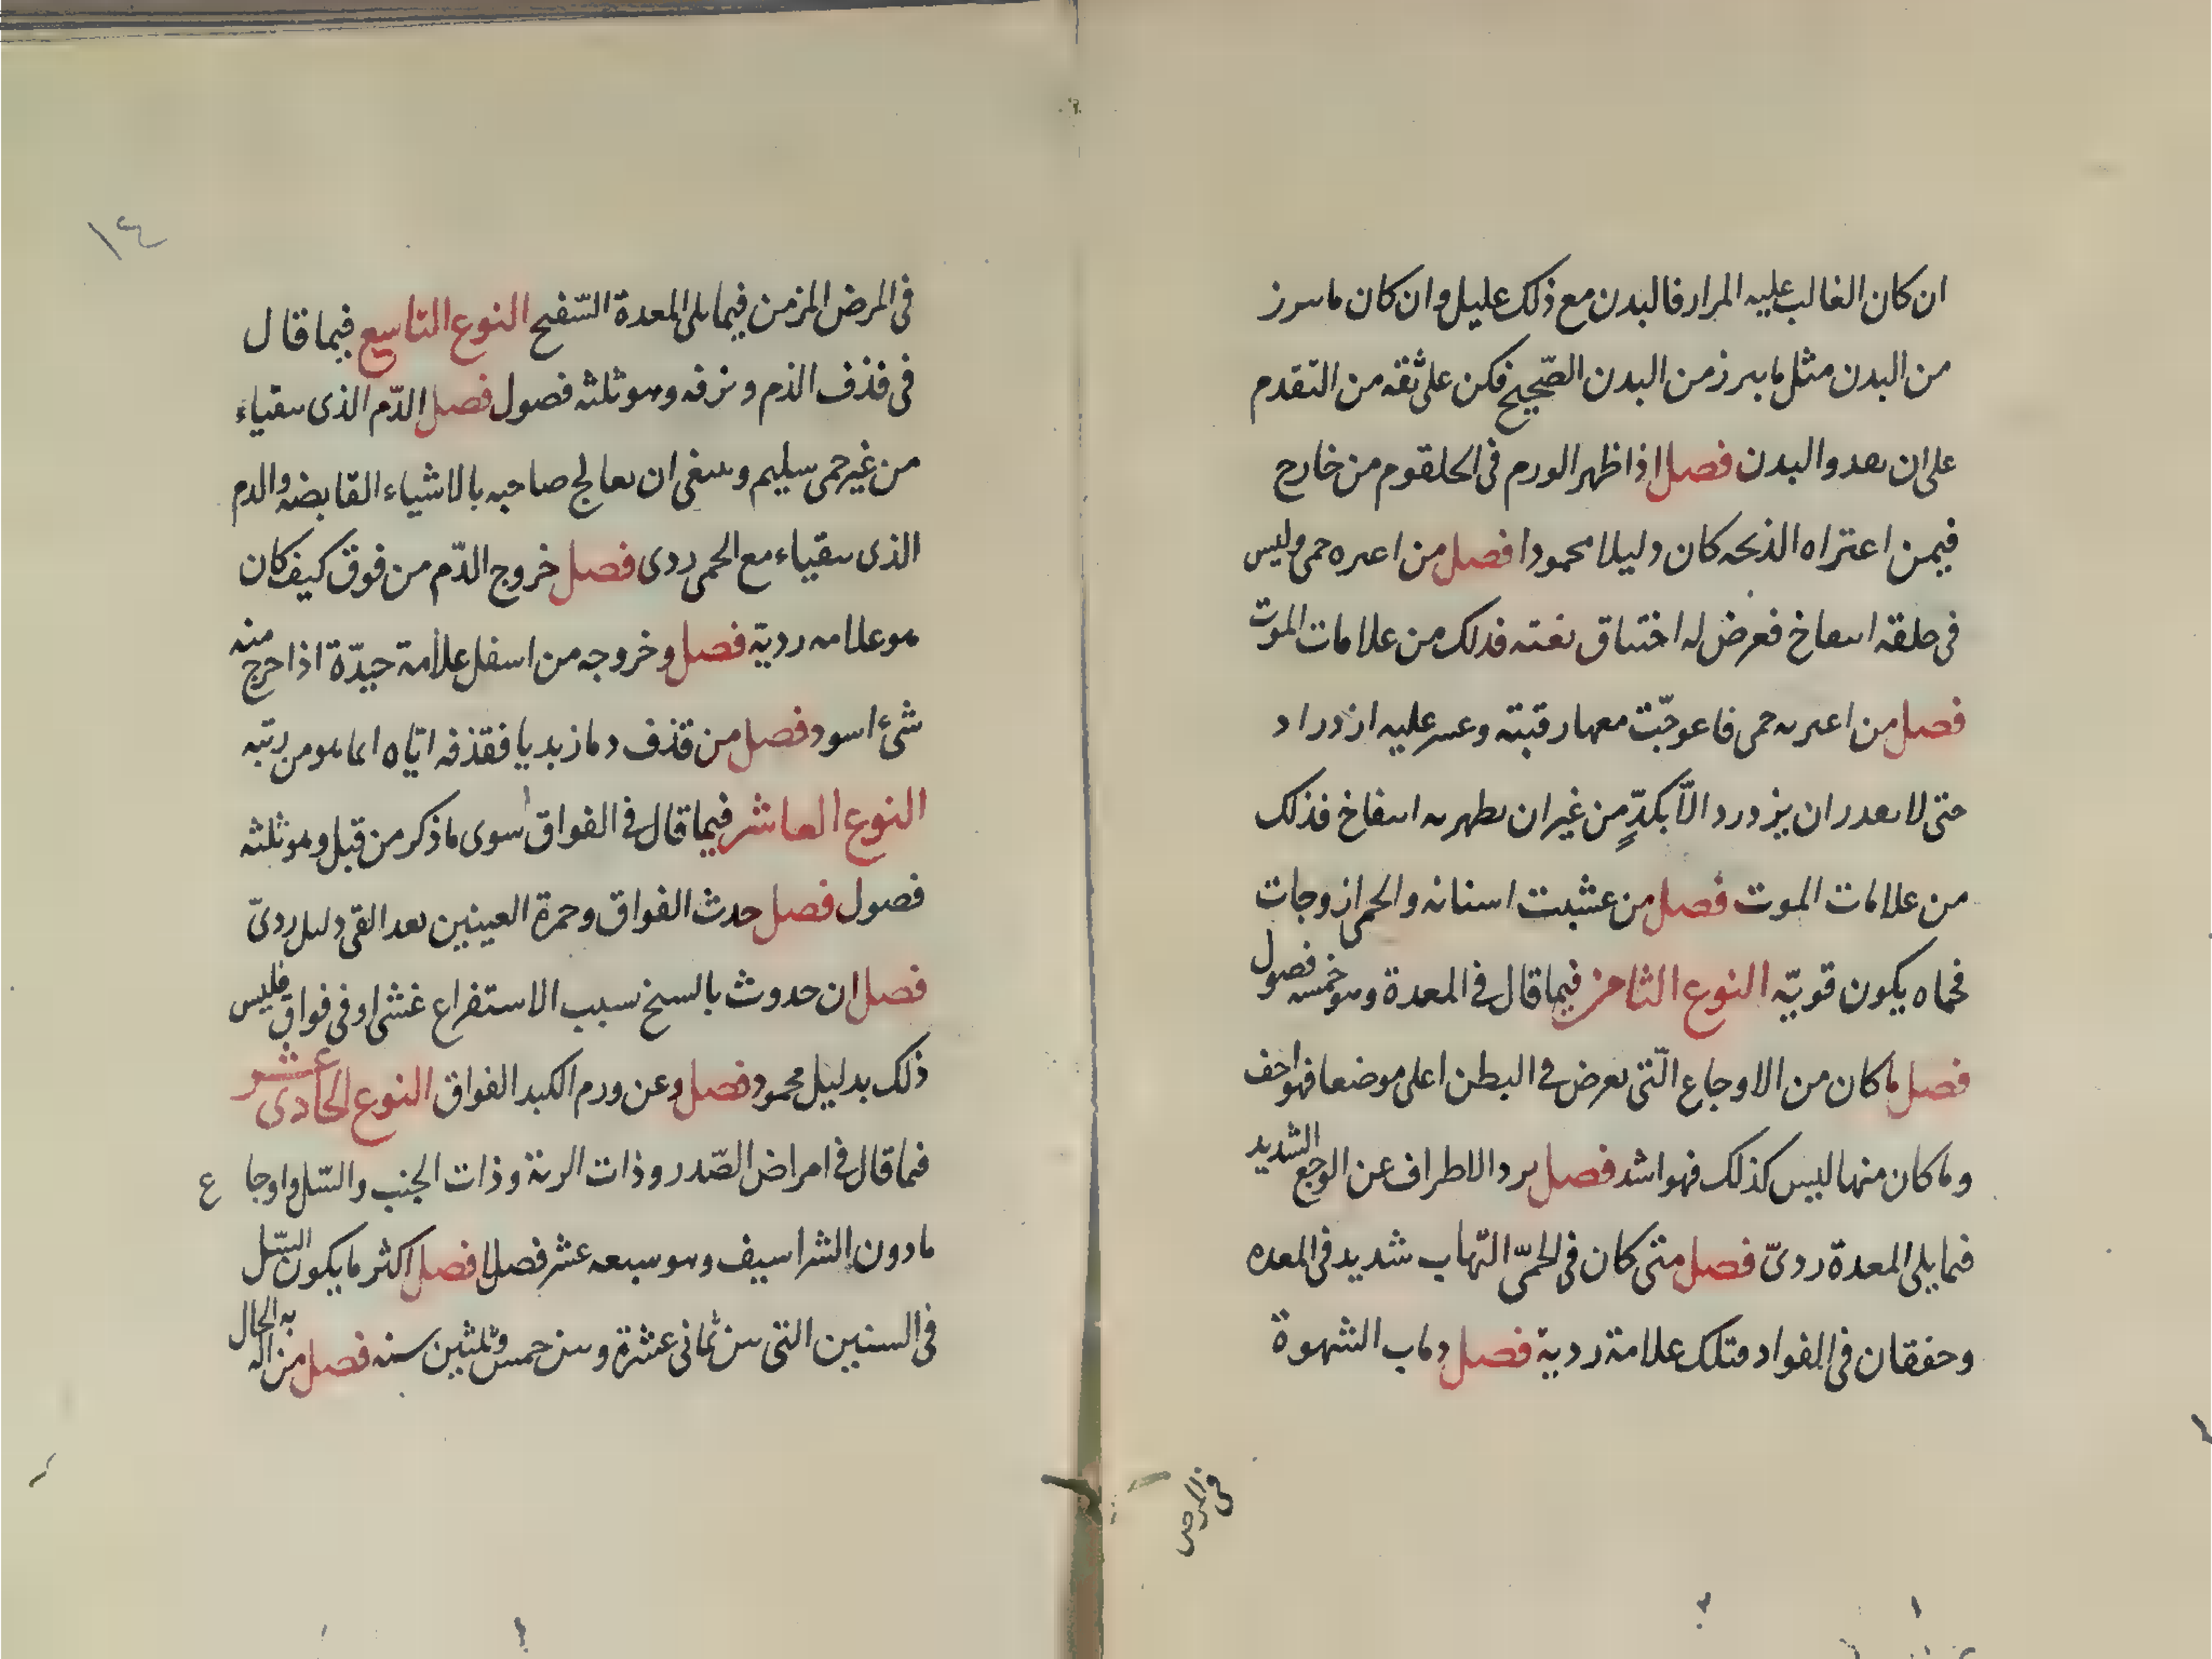 ان كان الغالب عليه المرار فالبدن مع ذلك عليل وان كان ما يبرز
من البدن مثل ما يبرز من البدن الصّحيح فكن على ثقه من التقدم
على ان يغدو البدن فصل اذا ظهر الورم فى الحلقوم من خارج
فيمن اعتراه الذبحه كان دليلا محمودا فصل من اعتره حمى وليس
فى حلقه انتفاخ فعرض له اختناق بغته فذلك من علامات الموت
فصل من اعتريه حمى فاعوجّت معها رقبته وعسر عليه ازدراد
حتى لا يقدر ان يزدرد الّا بكدٍّ من غير ان يظهر به انتفاخ فذلك
من علامات الموت فصل من عشبت اسنانه والحمى ازوجات
فحماه يكون قويّه النوع الثامن فيما قال فى المعدة وهو خمسه فصول
فصل ما كان من الاوجاع الّتى يعرض فى البطن اعلى موضعا فهو اخف
وما كان منها ليس كذلك فهو اشد فصل برد الاطراف عن الوجع الشديد
فيما يلى المعدة ردىّ فصل متى كان فى الحمّى التهاب شديد فى المعده
وخفقان فى الفواد فتلك علامة ردية فصل ذهاب الشهوة
فى المرض
١٤
فى المرض المزمن فيما يلى المعدة السّفيح النوع التاسع فيما قال
فى قذف الدم ونزفه وهو ثلثه فصول فصل الدّم الذى يتقياء
من غير حمى سليم وينبغى ان يعالج صاحبه بالاشياء القابضه والدم
الذى يتقياء مع الحمى ردى فصل خروج الدّم من فوق كيف كان
هو علامه ردية فصل وخروجه من اسفل علامة جيّدة اذا خرج منه
شئ اسود فصل من قذف دما زبديا فقذفه ايّاه انما هو من ريته
النوع العاشر فيما قال فى الفواق سوى ما ذكر من قبل وهو ثلثه
فصول فصل حدث الفواق وحمرة العينين بعد القى دليل ردىّ
فصل ان حدوث بالسخ بسبب الاستفراغ غشى او فى فواق فليس
ذلك بدليل محمود فصل وعن ورم الكبد الفواق النوع الحادى عشر
فيما قال فى امراض الصّدر وذات الرية وذات الجنب والسّل واوجاع
ما دون الشراسيف وهو سبعه عشر فصلا فصل اكثر ما يكون السّل
فى السنين التى بين ثمانى عشرة وبين خمس وثلثين سنه فصل من اله به الحال